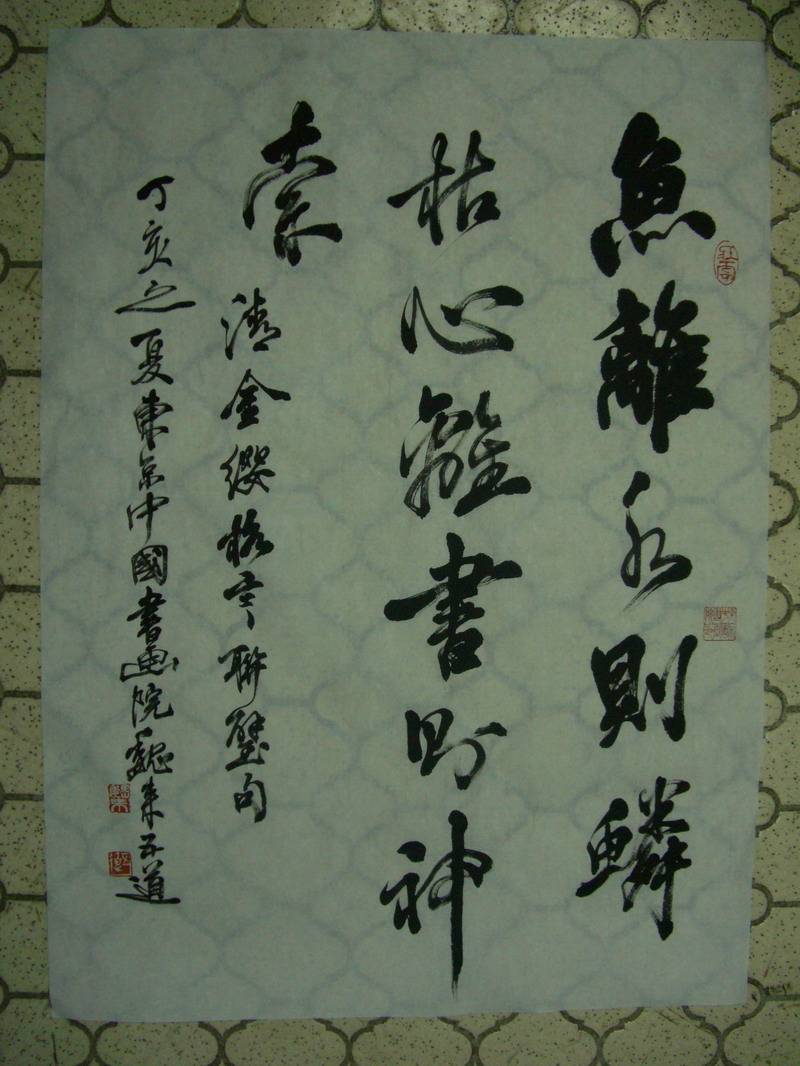 魚離水則鱗
枯心離書則神
索
清金纓格言聯璧句
丁亥之夏東京中國書画院魏来五道